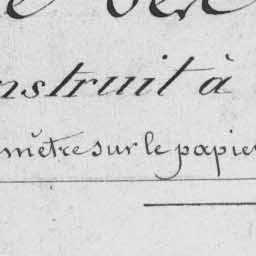 nstruit à
mètre sur le papier